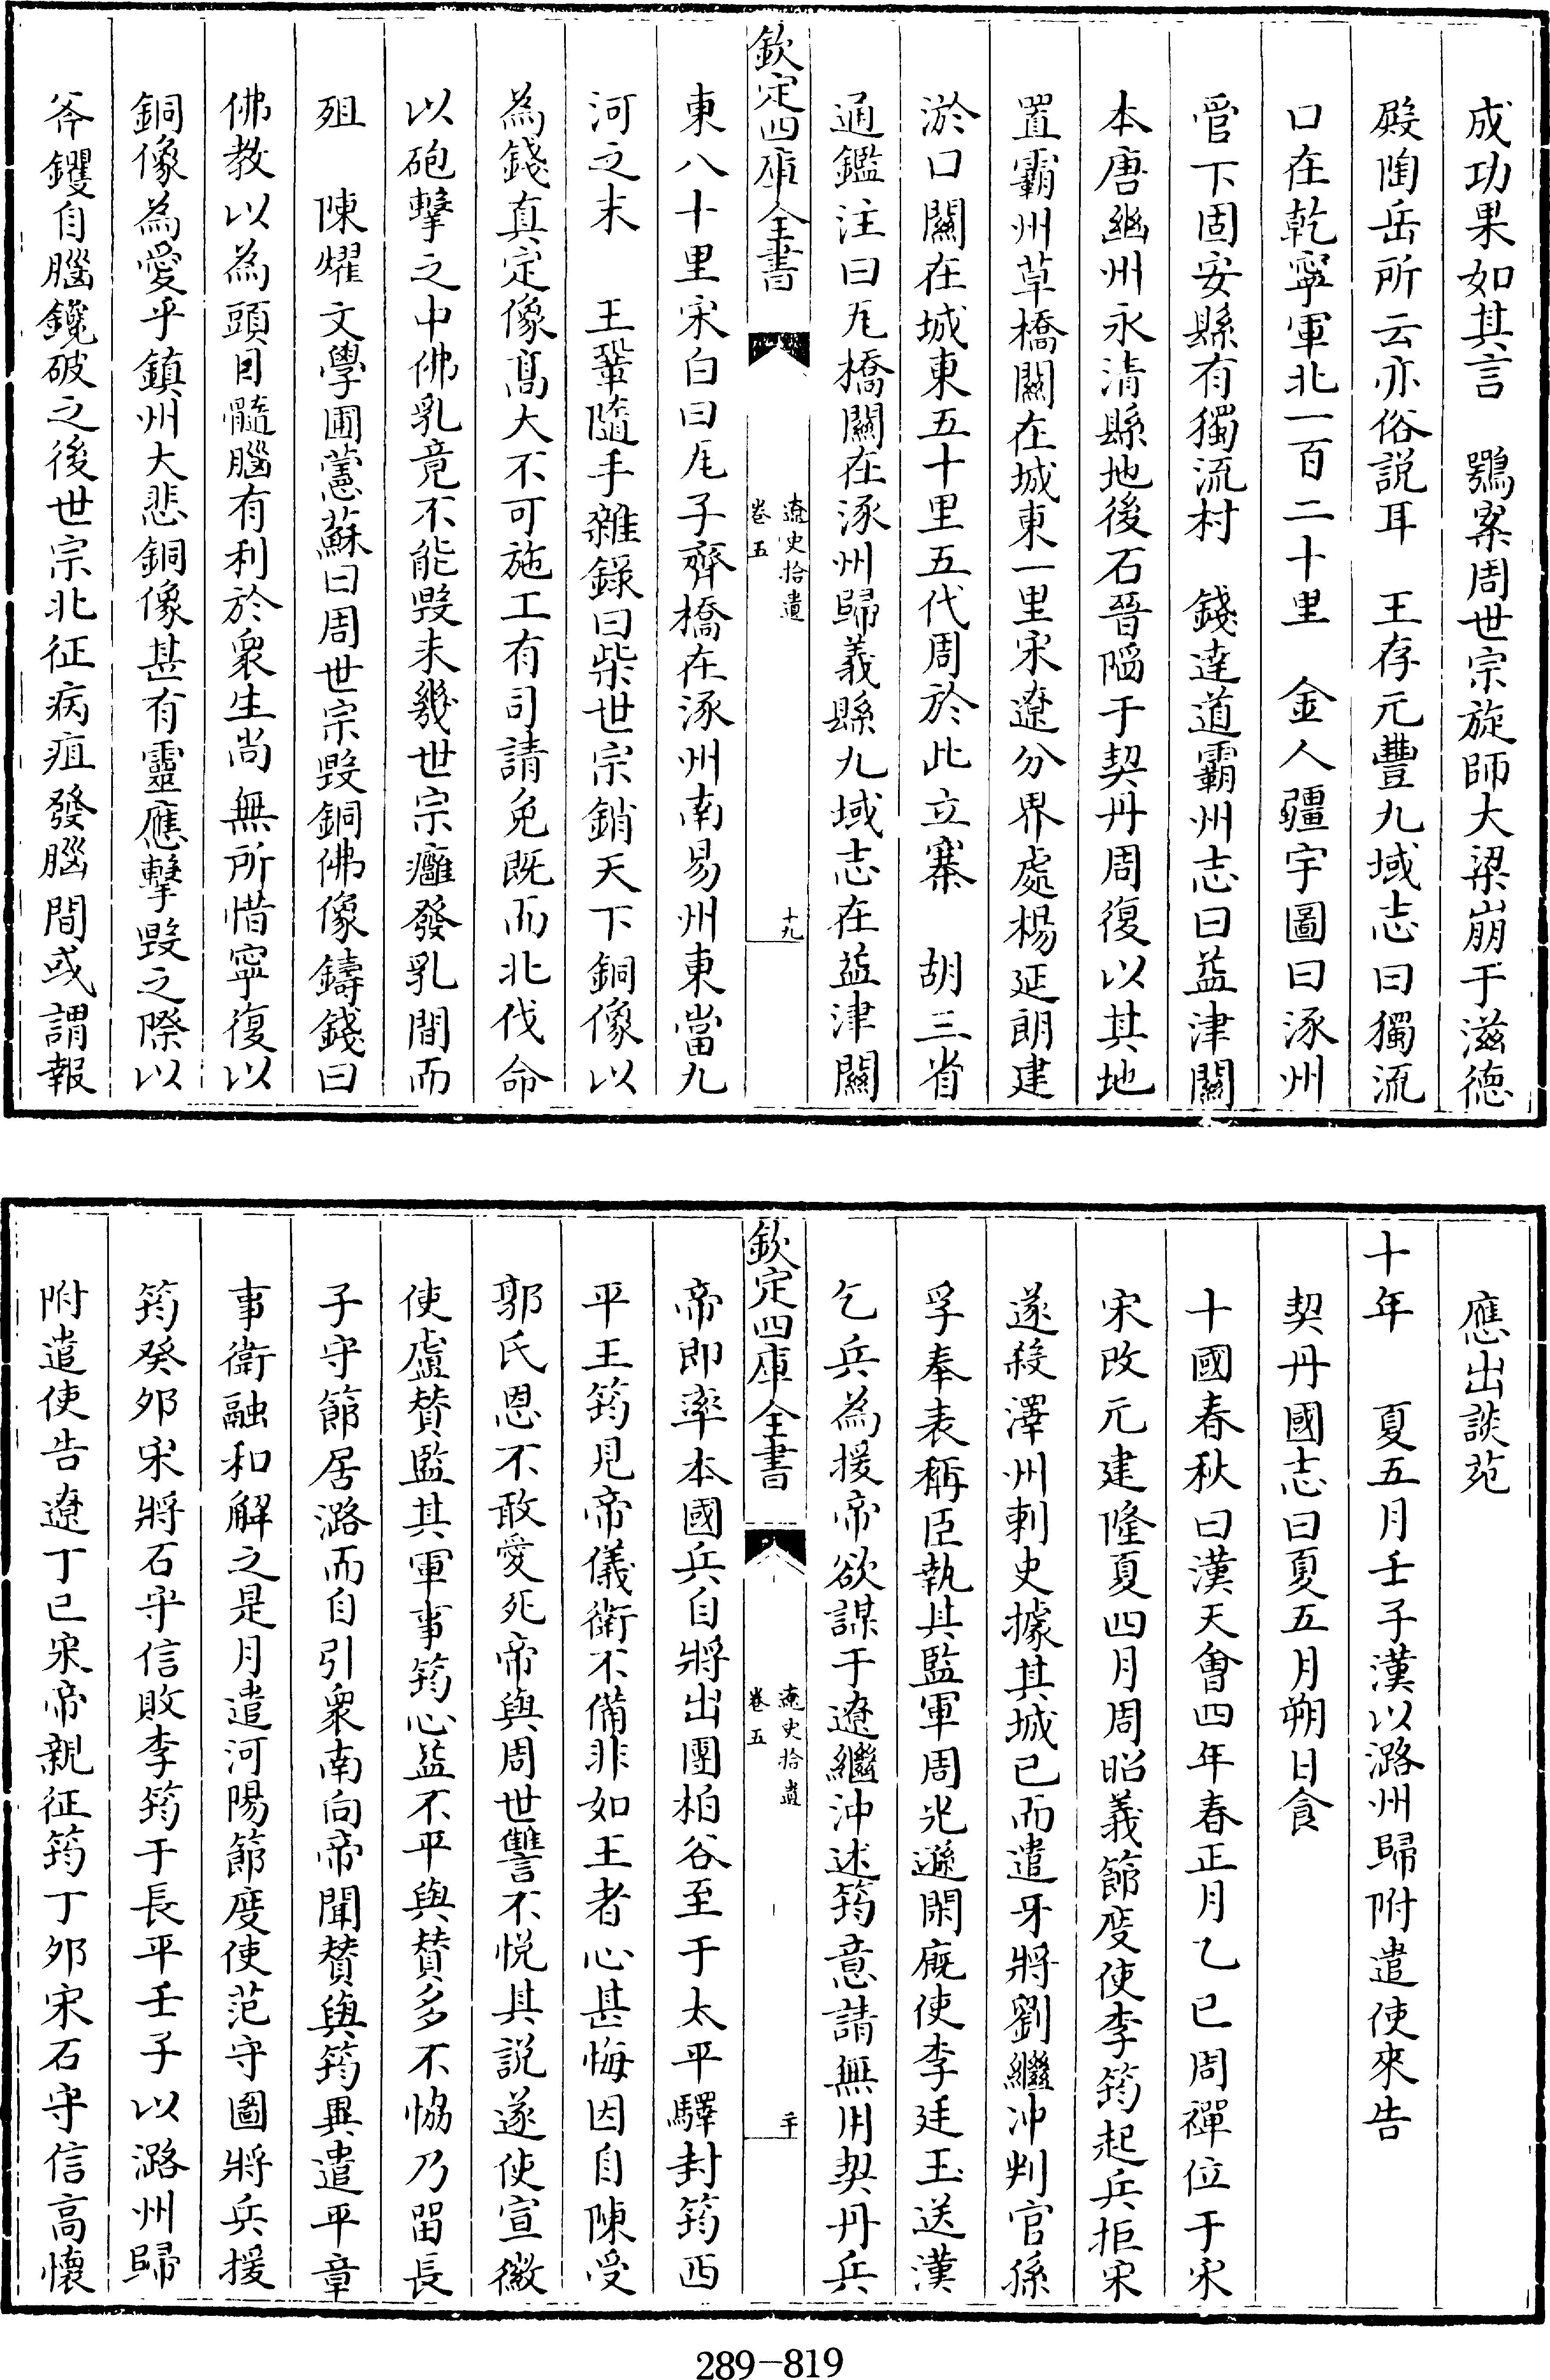 成功果如其言　鶚案周世宗旋師大梁崩于滋德
殿陶岳所云亦俗説耳　王存元豐九域志曰獨流
口在乾寧軍北一百二十里　金人疆宇圖曰涿州
管下固安縣有獨流村　錢達道霸州志曰益津關
本唐幽州永清縣地後石晉陷于契丹周復以其地
置霸州草橋關在城東一里宋遼分界處楊延朗建
淤口關在城東五十里五代周於此立寨　胡三省
通鑑注曰瓦橋關在涿州歸義縣九域志在益津關
欽定四庫全書
遼史拾遺
卷五
十九
東八十里宋白曰瓦子齊橋在涿州南易州東當九
河之末　王鞏隨手雜錄曰柴世宗銷天下銅像以
為錢真定像髙大不可施工有司請免既而北伐命
以砲擊之中佛乳竟不能毁未幾世宗癰發乳間而
殂　陳燿文學圃蘐蘇曰周世宗毁銅佛像鑄錢曰
佛教以為頭目髓腦有利於衆生尚無所惜寧復以
銅像為愛乎鎮州大悲銅像甚有靈應擊毁之際以
斧钁自腦鑱破之後世宗北征病疽發腦間或謂報
應出談苑
十年　夏五月壬子漢以潞州歸附遣使來告
契丹國志曰夏五月朔日食
十國春秋曰漢天會四年春正月乙巳周禪位于宋
宋改元建隆夏四月周昭義節度使李筠起兵拒宋
遂殺澤州刺史據其城已而遣牙將劉繼冲判官孫
孚奉表稱臣執其監軍周光遜閑廐使李廷玉送漢
乞兵為援帝欲謀于遼繼沖述筠意請無用契丹兵
欽定四庫全書
遼史拾遺
卷五
二十
帝即率本國兵自將出團柏谷至于太平驛封筠西
平王筠見帝儀衛不備非如王者心甚悔因自陳受
郭氏恩不敢愛死帝與周世讐不悦其説遂使宣徽
使盧贊監其軍事筠心益不平與贊多不恊乃留長
子守節居潞而自引衆南向帝聞贊與筠異遣平章
事衛融和解之是月遣河陽節度使范守圖將兵援
筠癸夘宋將石守信敗李筠于長平壬子以潞州歸
附遣使告遼丁巳宋帝親征筠丁夘宋石守信高懷
289-819